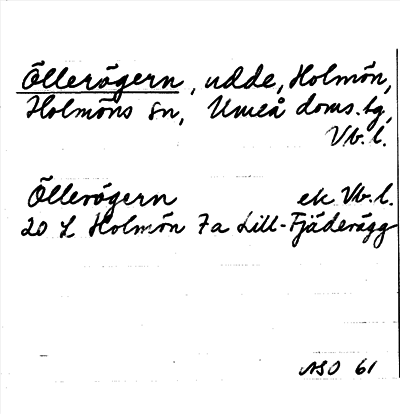 Öllerögern, udde, Holmön,
Holmöns sn, Umeå doms.tg,
Vb.l.
Öllerögern ek Vb.l.
20 L Holmön 7a Lill-Fjäderägg
NSO 61